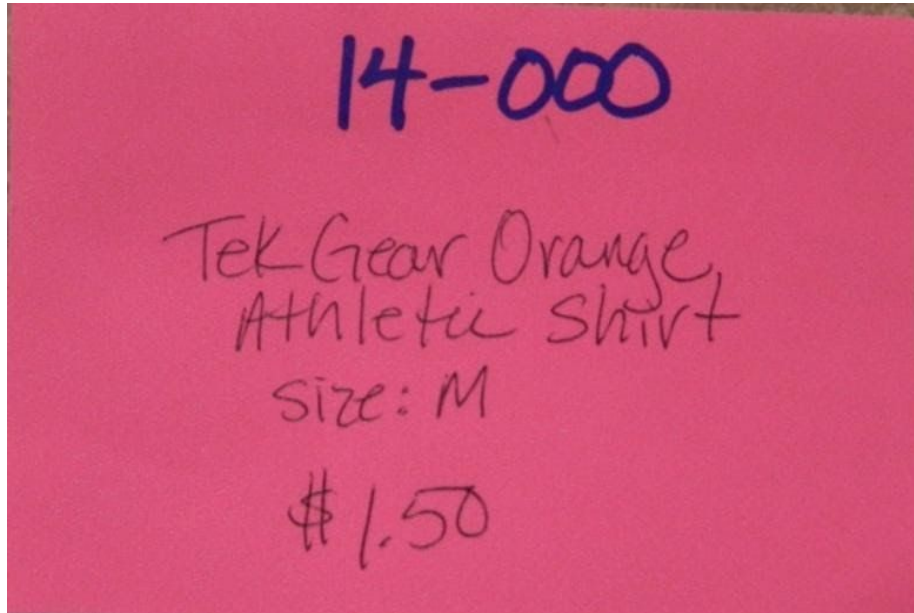 14-000
Tek Gear Orange
Athletic Shirt
size: M
$1.50